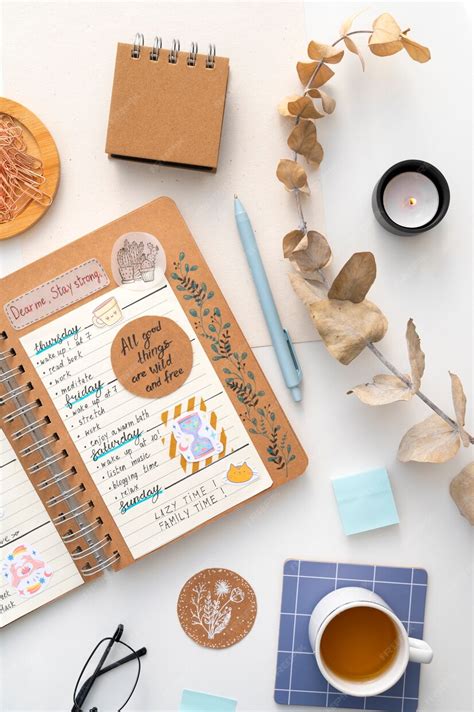 Dear me, Stay strong.
thursday
• wake up! at 7
• read book
• work
• meditate
friday
• wake up! at 8
• stretch
• work
• enjoy a warm bath
saturday
• wake up at 10!
• listen music
• blogging time
• relax
Sunday
LAZY TIME!
FAMILY TIME!
All good
things
are wild
and free